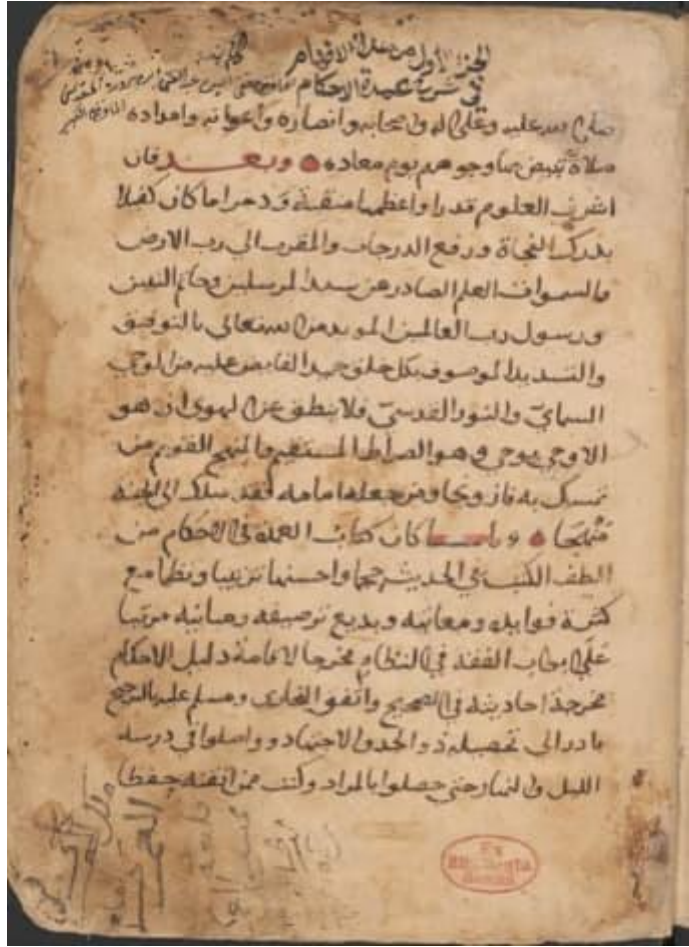 الجزء الأول من عدة الافهام
في شرح عمدة الاحكام
صلى الله عليه وعلى اله واصحابه وانصاره واعوانه وامداده
صلاة تبيض بها وجوههم يوم معاده وبعـــد فان
اشرف العلوم قدرا واعظمها منقبة وذخرا ما كان كفيلا
بدرك النجاة ورفع الدرجات والمقرب الى رب الارض
والسموات العلم الصادر عن سيد المرسلين وخاتم النبيين
ورسول رب العالمين المويد من الله تعالى بالتوفيق
والتسديد الموصوف بكل خلق حميد الفايض عليه من الوحي
السمايي والنور القدسي فلا ينطق عن الهوى ان هو
الا وحي يوحى وهو الصراط المستقيم والمنهج القويم من
تمسك به فاز ونجا ومن جعله امامه فقد سلك الى الجنة
منهجا ولمـــا كان كتاب العمدة في الاحكام من
الطف الكتب في الحديث حجما واحسنها ترتيبا ونظما مع
كثرة فوايده ومعانيه وبديع ترصيفه ومبانيه مرتبا
على ابواب الفقه في النظام مخرجا لاقامة دليل الاحكام
مخرجة احاديثه في الصحيح واتفق البخاري ومسلم عليه بالترجيح
بادر الى تحصيله ذو الجد والاجتهاد وواصلوا في درسه
الليل والنهار حتى حصلوا بالمراد وكنت ممن اتقنه حفظا
Ex
Bibliotheca